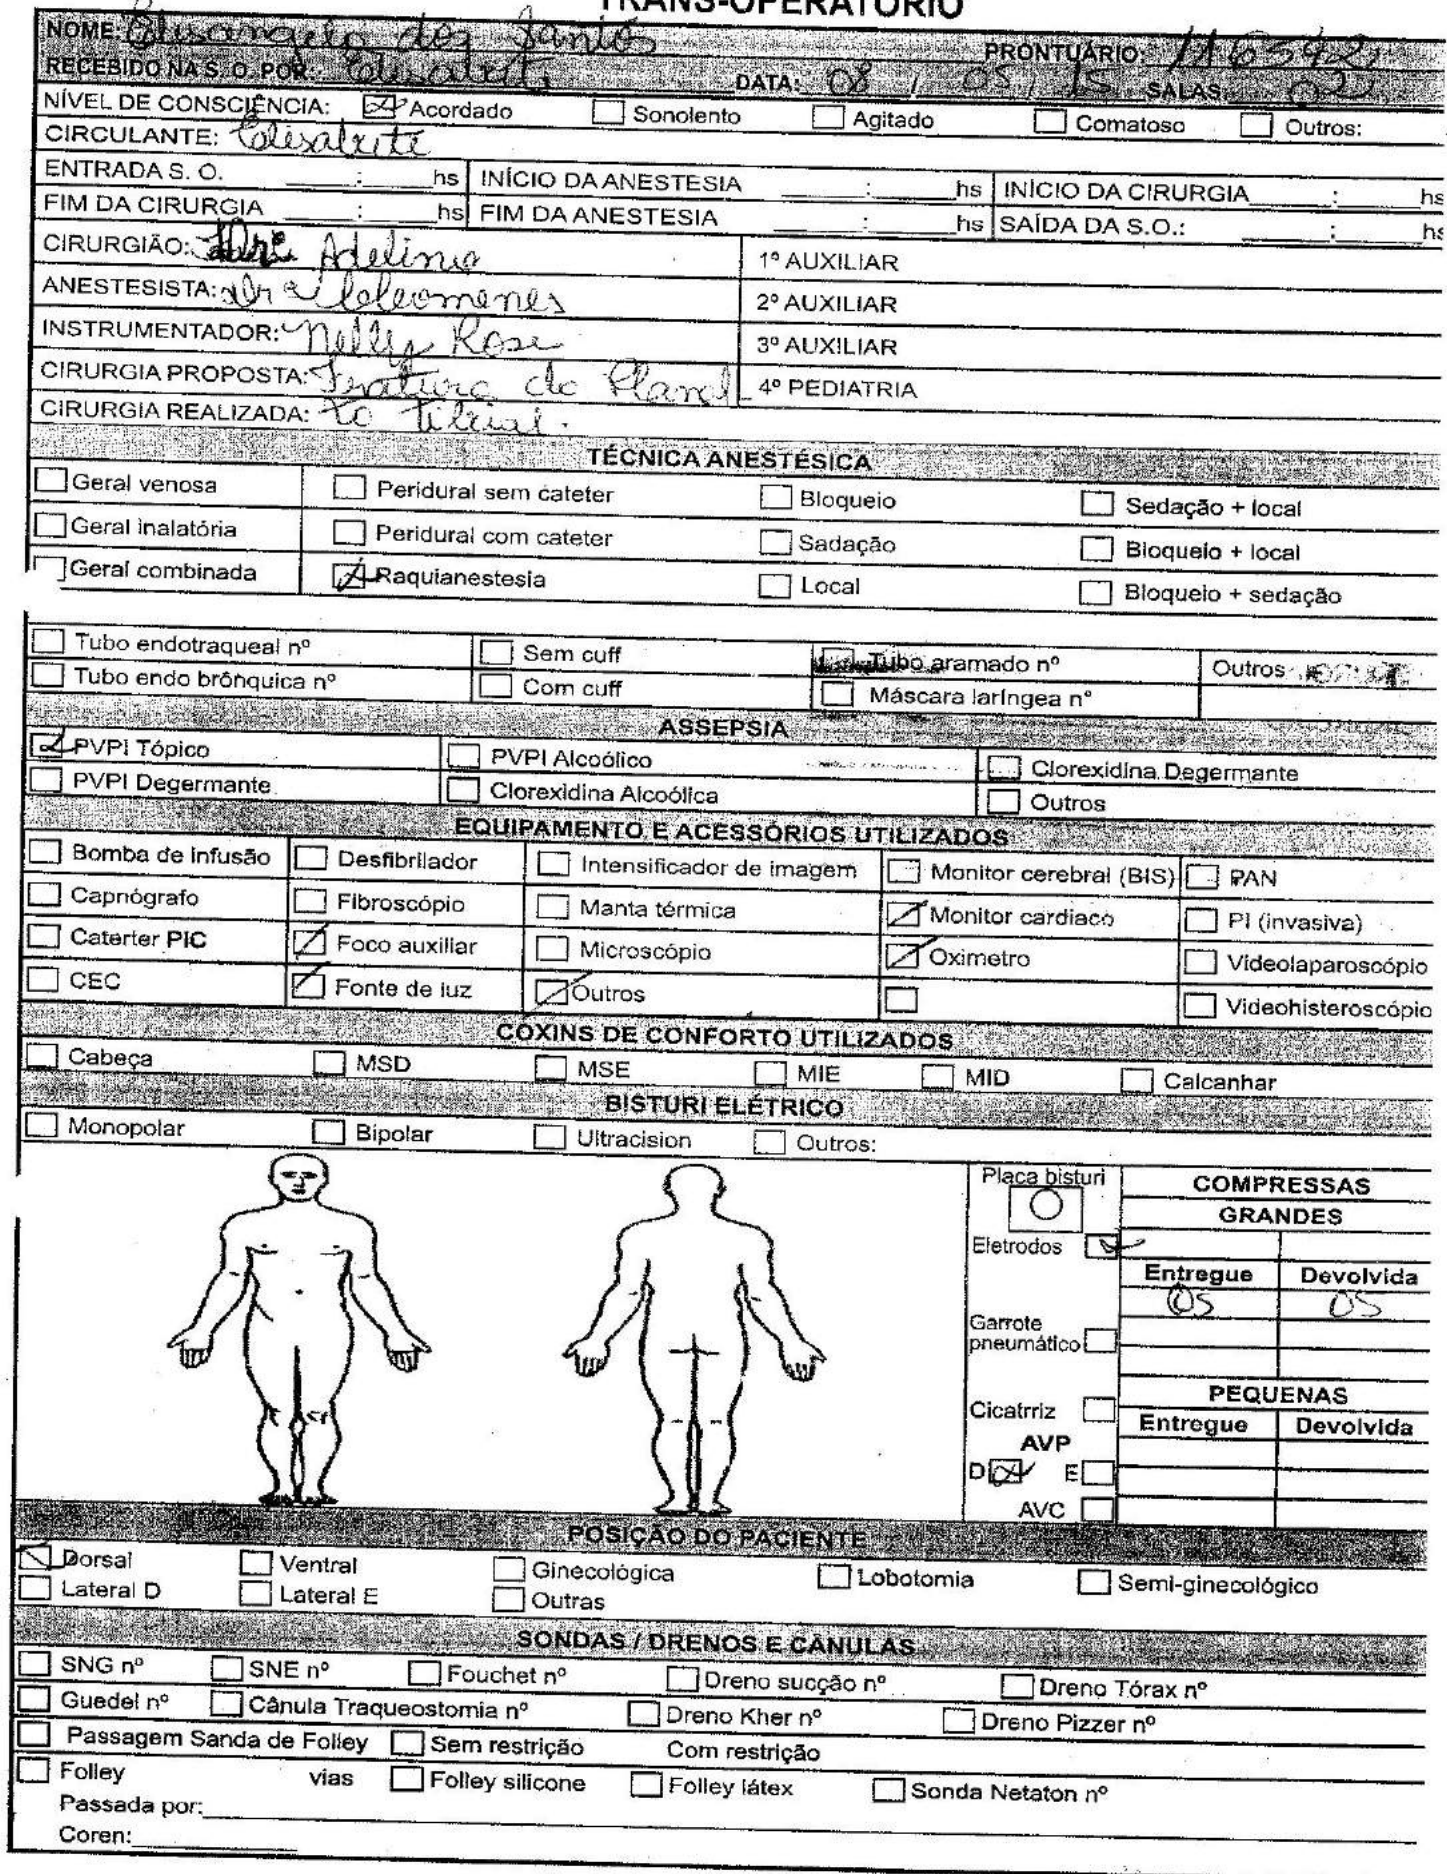 TRANS-OPERATÓRIO
NOME: Elisangela dos Santos PRONTUÁRIO: 116542
RECEBIDO NA S. O. POR: Elisabeti DATA: 08 / 05 / 15 SALAS 02
NÍVEL DE CONSCIÊNCIA: Acordado Sonolento Agitado Comatoso Outros:
CIRCULANTE: Elisabete
ENTRADA S. O. ____:____hs INÍCIO DA ANESTESIA ____:____hs INÍCIO DA CIRURGIA____:____hs
FIM DA CIRURGIA ____:____hs FIM DA ANESTESIA ____:____hs SAÍDA DA S.O.: ____:____hs
CIRURGIÃO: Adelino 1º AUXILIAR
ANESTESISTA: Dr Cleomenes 2º AUXILIAR
INSTRUMENTADOR: Nelly Rose 3º AUXILIAR
CIRURGIA PROPOSTA: Fratura do Planal 4º PEDIATRIA
CIRURGIA REALIZADA: to Tibial.
TÉCNICA ANESTÉSICA
Geral venosa Peridural sem cateter Bloqueio Sedação + local
Geral inalatória Peridural com cateter Sadação Bloqueio + local
Geral combinada Raquianestesia Local Bloqueio + sedação
Tubo endotraqueal nº Sem cuff Tubo aramado nº Outros
Tubo endo brônquica nº Com cuff Máscara laríngea nº
ASSEPSIA
PVPI Tópico PVPI Alcoólico Clorexidina Degermante
PVPI Degermante Clorexidina Alcoólica Outros
EQUIPAMENTO E ACESSÓRIOS UTILIZADOS
Bomba de infusão Desfibrilador Intensificador de imagem Monitor cerebral (BIS) PAN
Capnógrafo Fibroscópio Manta térmica Monitor cardiaco PI (invasiva)
Caterter PIC Foco auxiliar Microscópio Oximetro Videolaparoscópio
CEC Fonte de luz Outros Videohisteroscópio
COXINS DE CONFORTO UTILIZADOS
Cabeça MSD MSE MIE MID Calcanhar
BISTURI ELÉTRICO
Monopolar Bipolar Ultracision Outros:
Placa bisturi COMPRESSAS
GRANDES
Eletrodos
Entregue Devolvida
05 05
Garrote
pneumático
PEQUENAS
Cicatrriz Entregue Devolvida
AVP
D E
AVC
POSIÇÃO DO PACIENTE
Dorsal Ventral Ginecológica Lobotomia Semi-ginecológico
Lateral D Lateral E Outras
SONDAS / DRENOS E CÂNULAS
SNG nº SNE nº Fouchet nº Dreno sucção nº Dreno Tórax nº
Guedel nº Cânula Traqueostomia nº Dreno Kher nº Dreno Pizzer nº
Passagem Sanda de Folley Sem restrição Com restrição
Folley vias Folley silicone Folley látex Sonda Netaton nº
Passada por:
Coren: